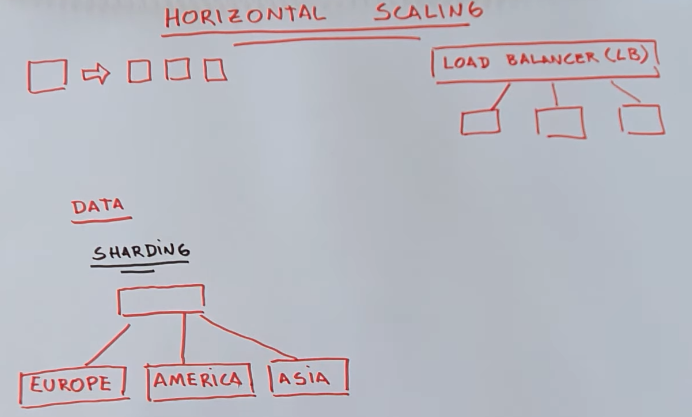 HORIZONTAL SCALING
LOAD BALANCER (LB)
DATA
SHARDING
EUROPE
AMERICA
ASIA